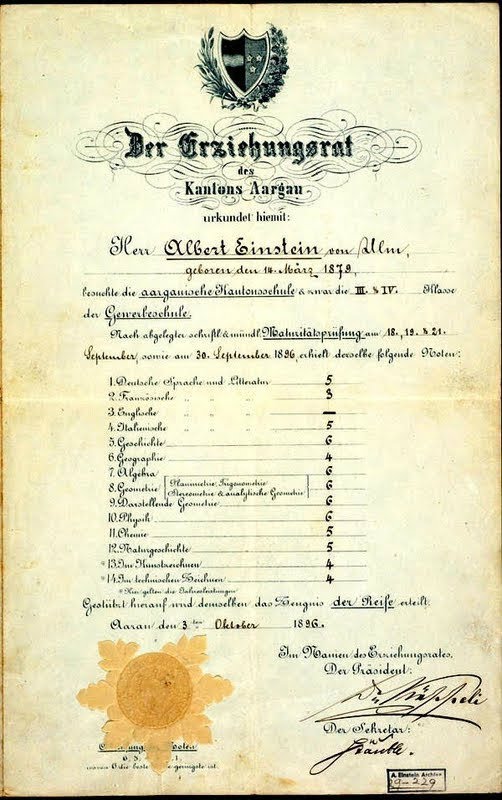 Der Erziehungsrat
des
Kantons Aargau
urkundet hiemit:
Herr Albert Einstein von Ulm,
geboren den 14. März 1879,
besuchte die aargauische Kantonsschule & zwar die III. & IV. Klasse
der Gewerbeschule.
Nach abgelegter schriftl. & mündl. Maturitätsprüfung am 18., 19. & 21.
September, sowie am 30. September 1896, erhielt derselbe folgende Noten:
1. Deutsche Sprache und Litteratur 5
2. Französische „ „ „ 3
3. Englische „ „ „ —
4. Italienische „ „ „ 5
5. Geschichte 6
6. Geographie 4
7. Algebra 6
8. Geometrie [Planimetrie, Trigonometrie 6
Stereometrie & analytische Geometrie] 6
9. Darstellende Geometrie 6
10. Physik 6
11. Chemie 5
12. Naturgeschichte 5
*13. Im Kunstzeichnen 4
*14. Im technischen Zeichnen 4
*Hier gelten die Jahresleistungen
Gestützt hierauf wird demselben das Zeugnis der Reife erteilt.
Aarau den 3ten Oktober 1896.
Im Namen des Erziehungsrates,
Der Präsident:
Der Sekretär:
Noten
6. 5. 1.
wovon 6 die beste geringste ist.
A. Einstein Archive
29-229